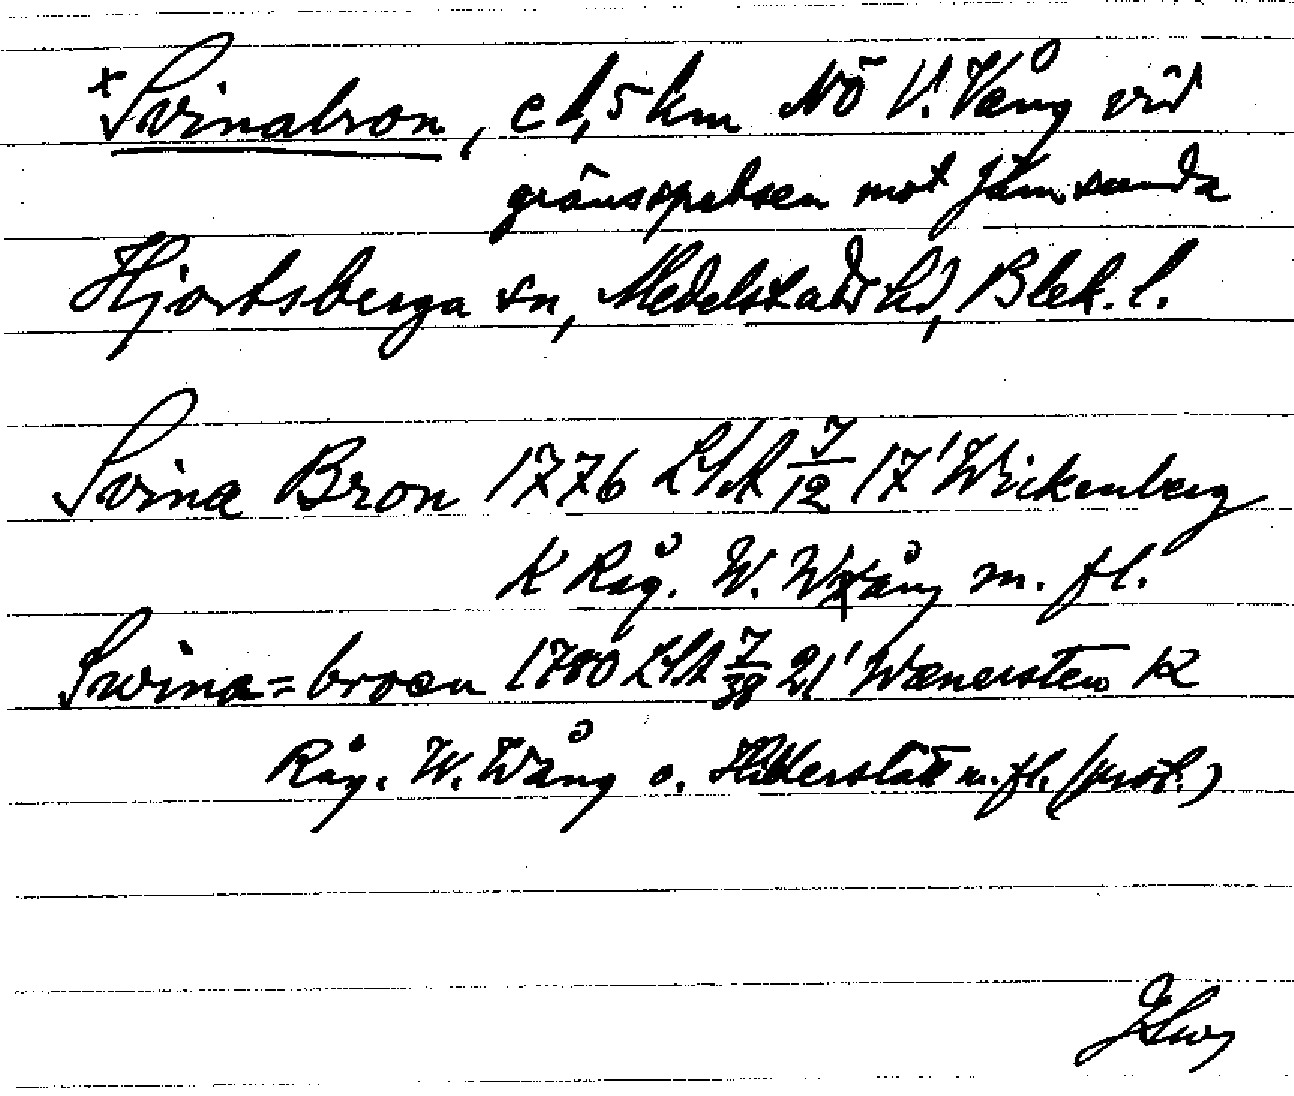 × Svinabron, c 1,5 km NÖ V. Vång vid
gränsspetsen mot Jämsunda
Hjortsberga sn, Medelstads hd, Blek. l.
Svina Bron 1776 LSA 7/12 17' Wickenberg
K Råg. W. Wång m. fl.
Swina=broen 1780 LSA 7/38 21' Wænersten K
Råg. W. Wång o. m. fl. (prot.)